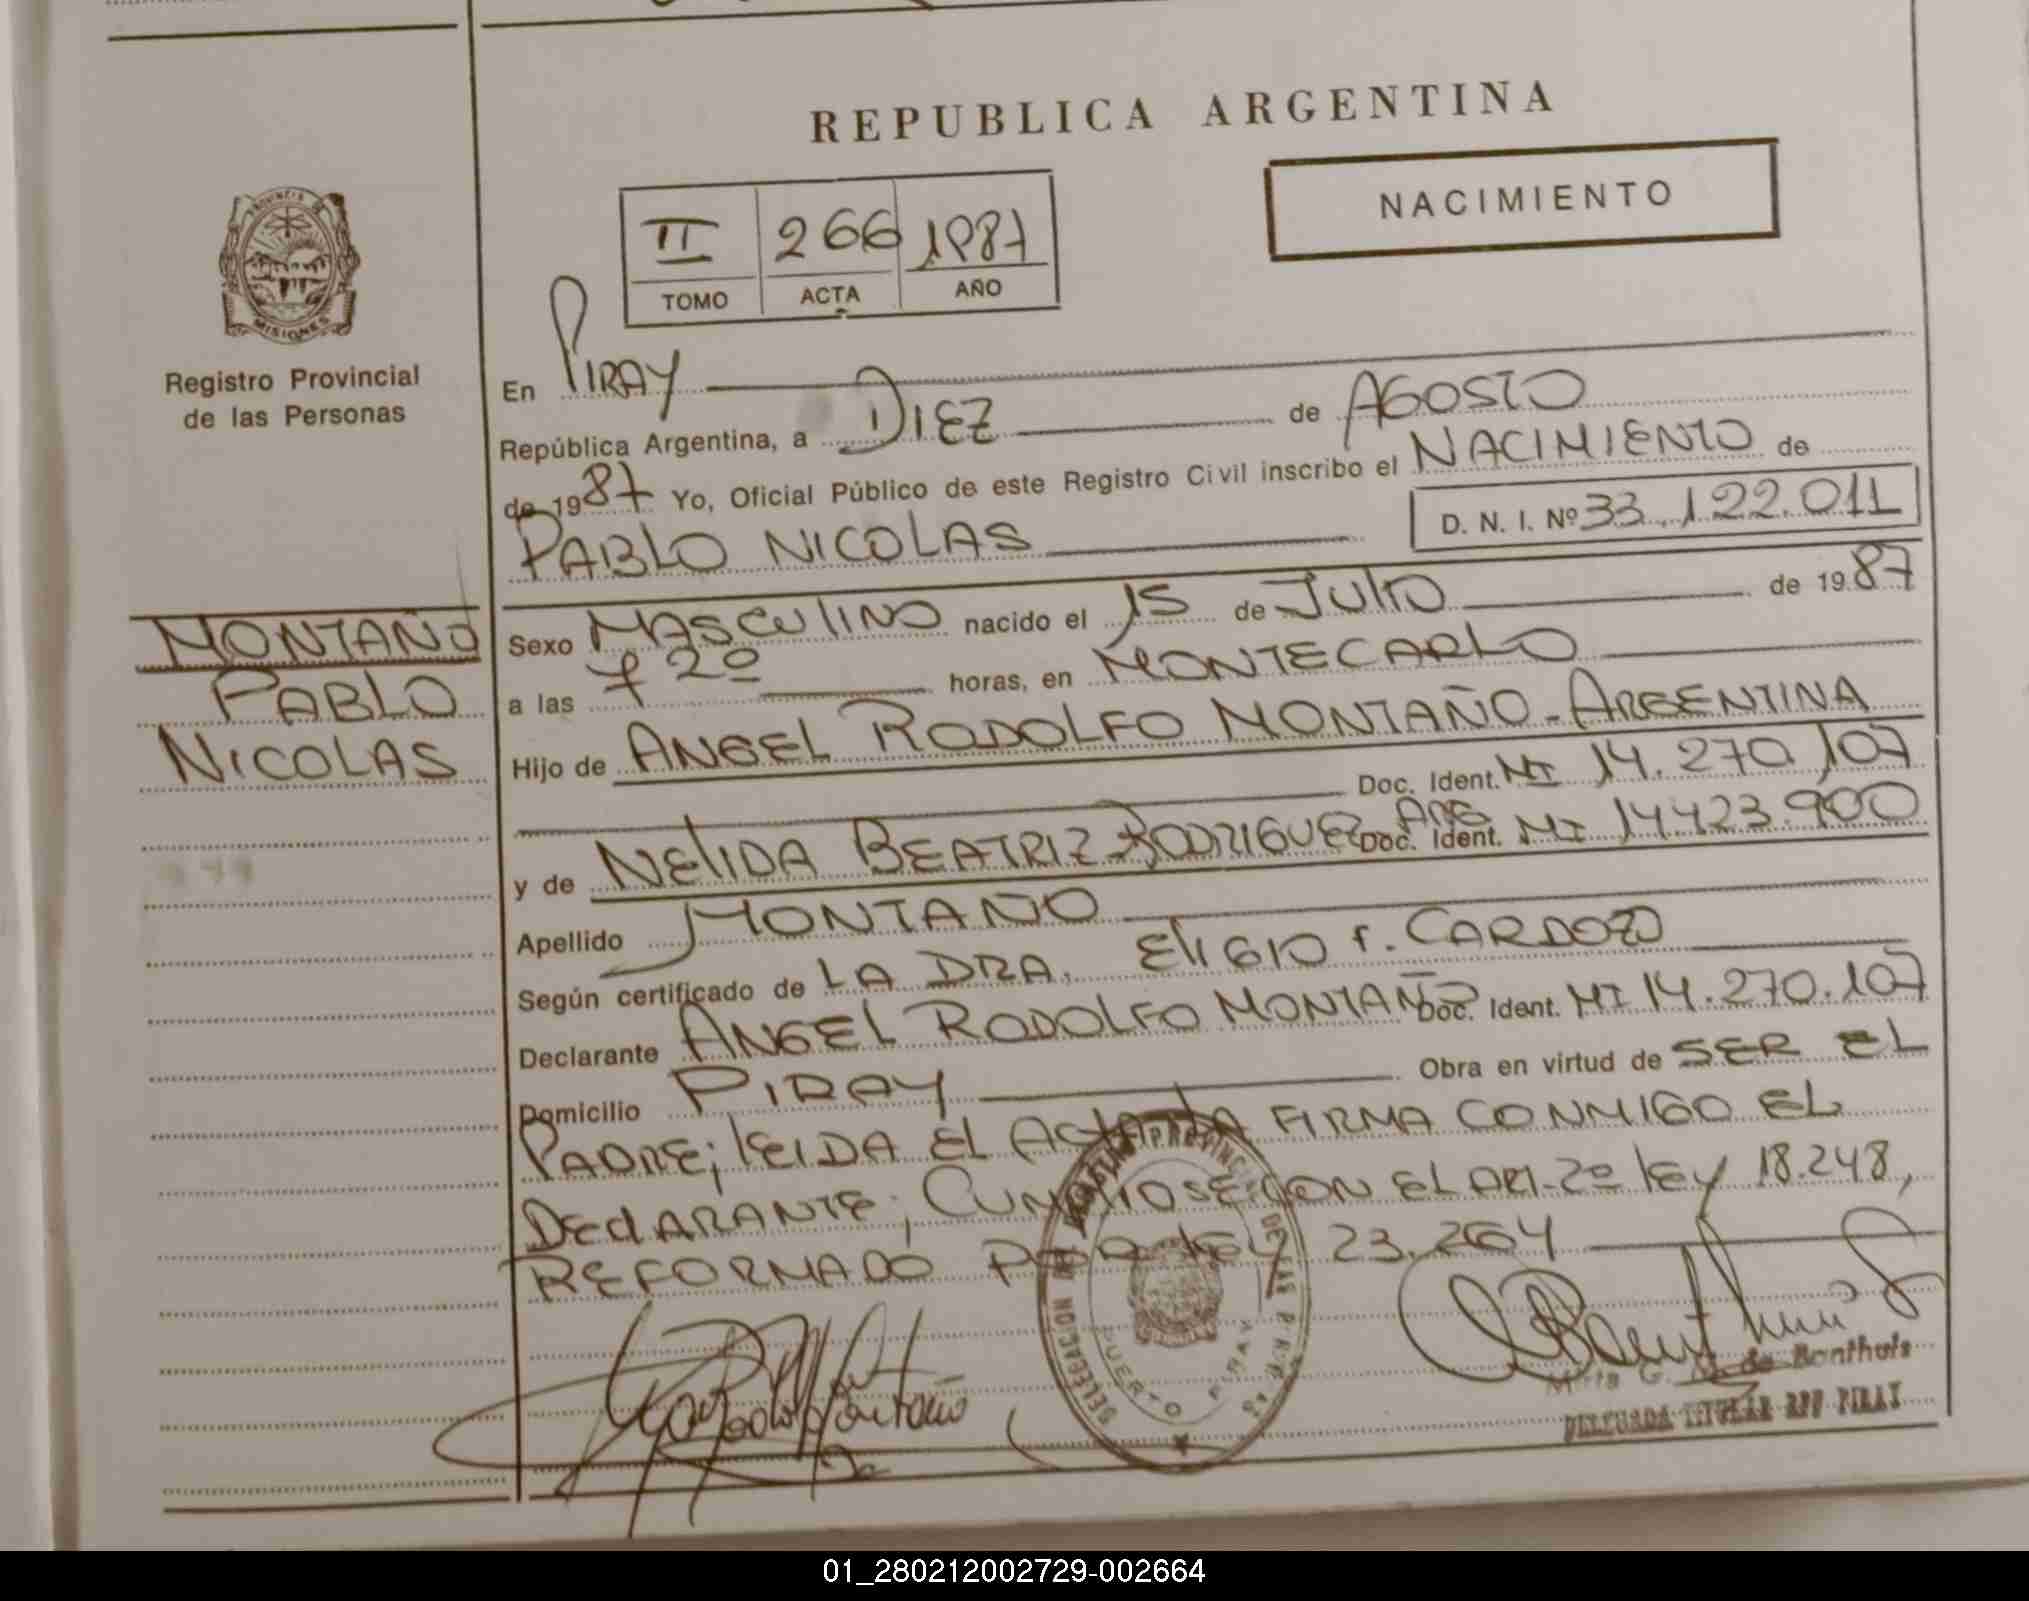 REPUBLICA ARGENTINA
NACIMIENTO
II 266 1987
TOMO ACTA AÑO
PROVINCIA DE
MISIONES
Registro Provincial
de las Personas
MONTAÑO
PABLO
NICOLAS
En PIRAY
República Argentina, a DIEZ de AGOSTO
de 1987 Yo, Oficial Público de este Registro Civil inscribo el NACIMIENTO de
PABLO NICOLAS D. N. I. Nº 33.122.011
Sexo MASCULINO nacido el 15 de JULIO de 1987
a las 7 20 horas, en MONTECARLO
Hijo de ANGEL RODOLFO MONTAÑO - ARGENTINA
Doc. Ident. MI 14.270.107
y de NELIDA BEATRIZ RODRIGUEZ ARG Doc. Ident. MI 14423.900
Apellido MONTAÑO
Según certificado de LA DRA. ELIGIO F. CARDOZO
Declarante ANGEL RODOLFO MONTAÑO Doc. Ident. MI 14.270.107
Domicilio PIRAY Obra en virtud de SER EL
PADRE; LEIDA EL ACTA LA FIRMA CONMIGO EL
DECLARANTE; CUMPLIOSE CON EL ART-2º LEY 18.248,
REFORMADO POR LEY 23.264
DELEGACION DEL REGISTRO PROVINCIAL DE LAS PERSONAS
PUERTO PIRAY
Mirta G. N. de Bonthuis
DELEGADA TITULAR RPP PIRAY
01_280212002729-002664